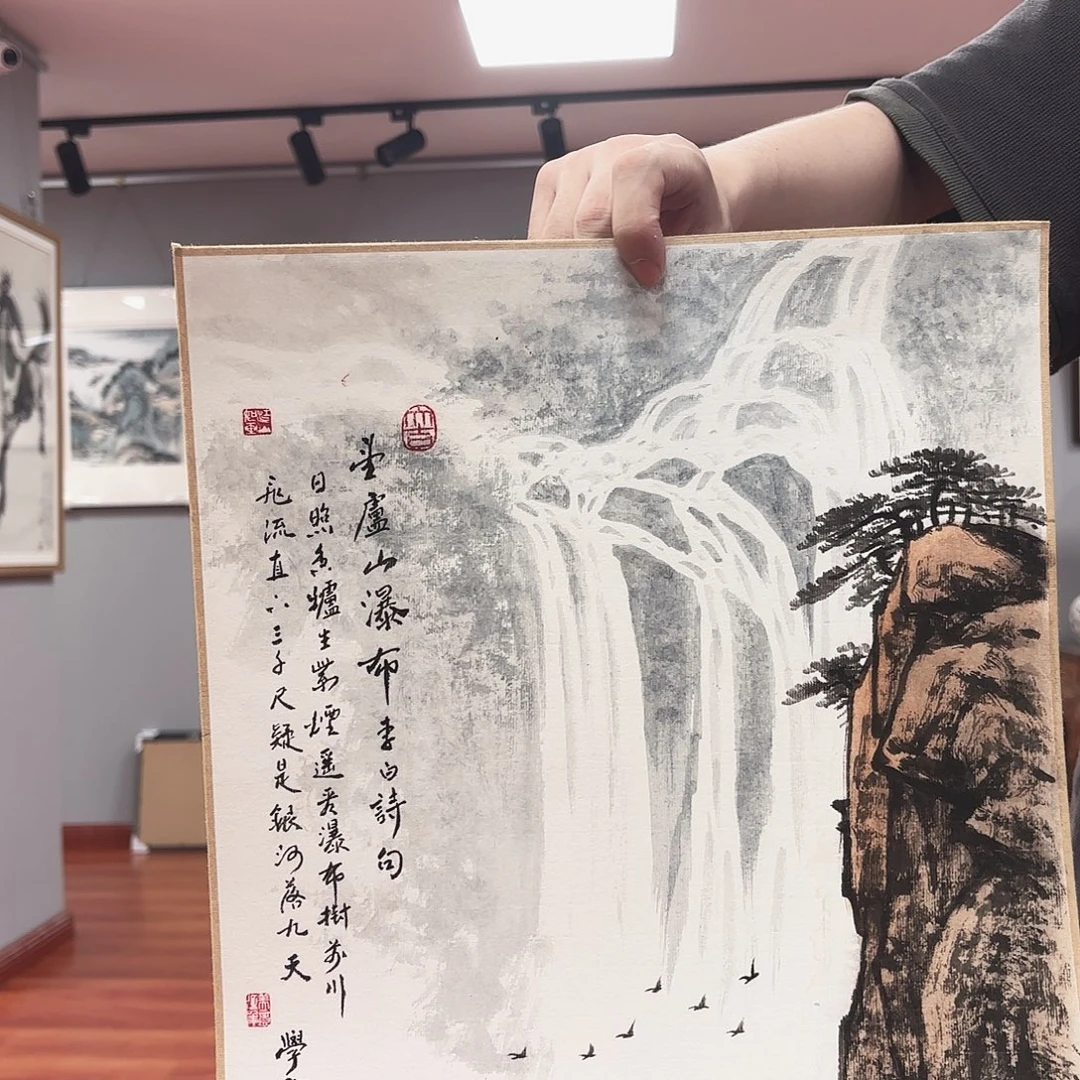 望廬山瀑布李白詩句
日照香爐生紫煙遥看瀑布樹前川
飛流直下三千尺疑是銀河落九天
學